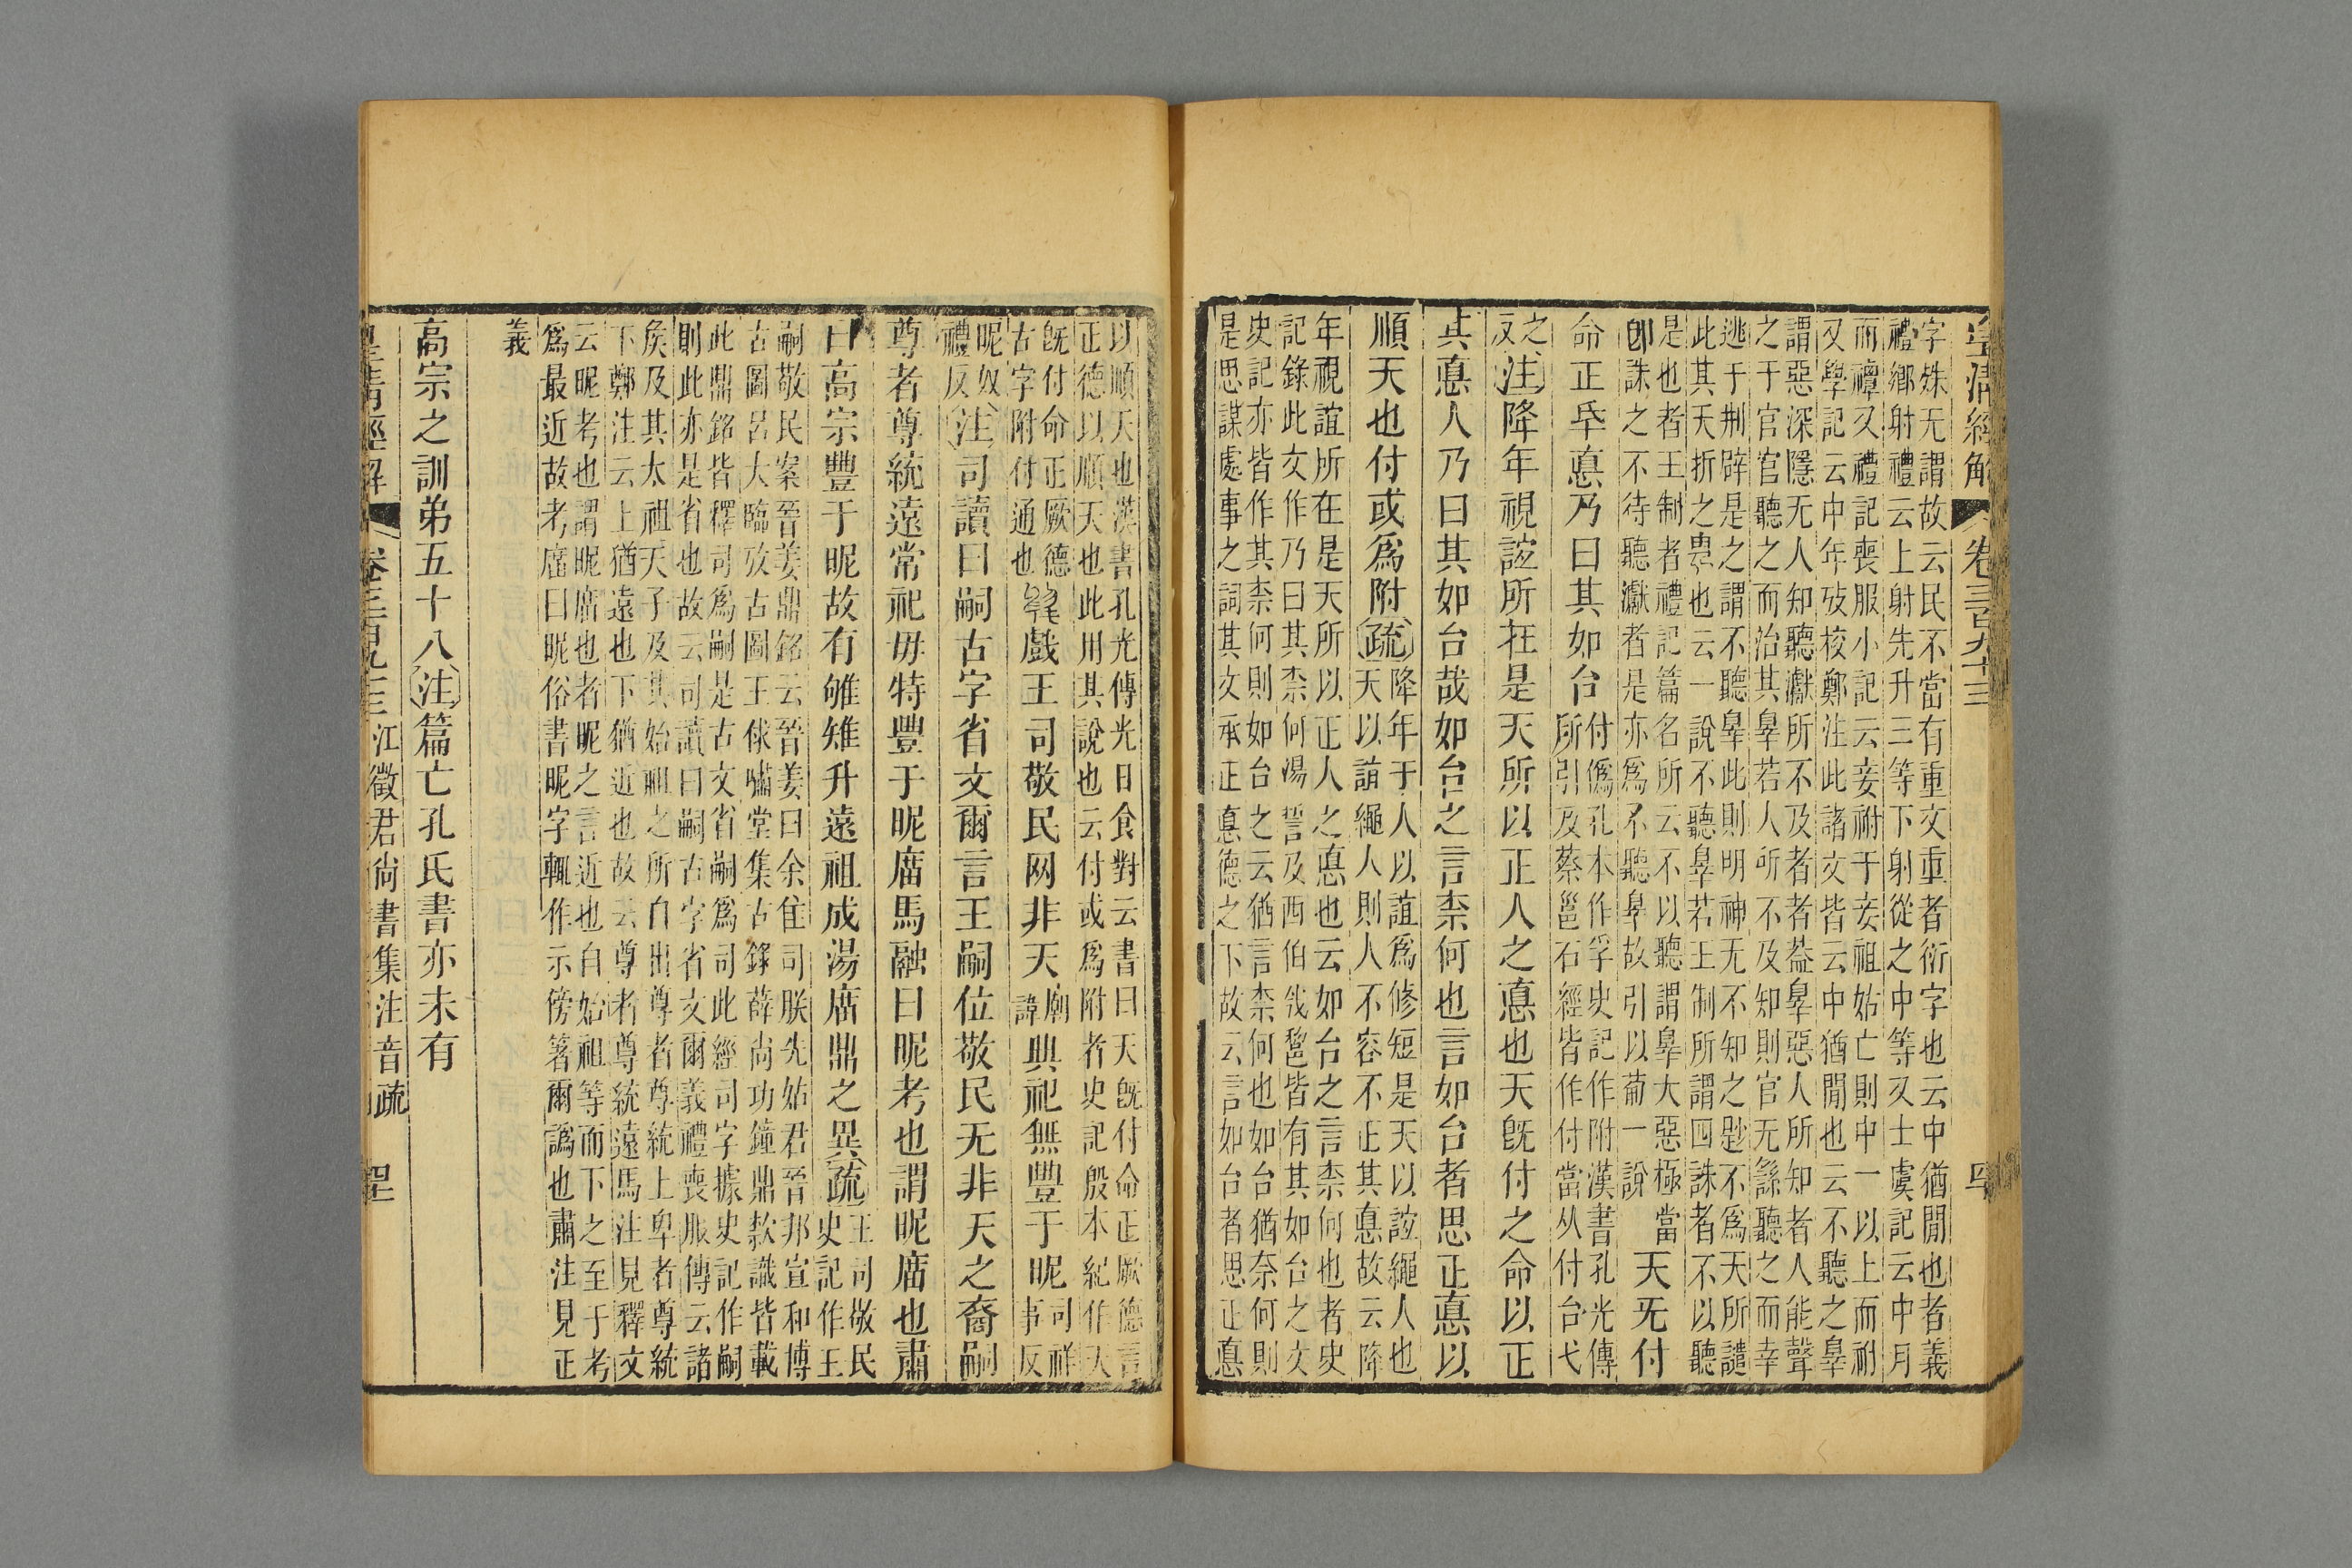 皇清經解 卷三百九十三 四
字殊无謂故云民不當有重文重者衍字也云中猶閒也者義
禮鄉射禮云上射先升三等下射從之中等又士虞記云中月
而禫又禮記喪服小記云妾祔于妾祖姑亡則中一以上而祔
又學記云中年攷校鄭注此諸文皆云中猶閒也云不聽之辠
謂惡深隱无人知聽瀸所不及者者葢辠惡人所知者人能聲
之于官官聽之而治其辠若人所不及知則官无繇聽之而幸
逃于刑辟是之謂不聽辠此則明神无不知之䠶不爲天所譴
此其夭折之㬰也云一說不聽辠若王制所謂四誅者不以聽
是也者王制者禮記篇名所云不以聽謂辠大惡極當
卽誅之不待聽瀸者是亦爲不聽辠故引以葡一說
天旡付
命正氒悳乃曰其如台
付僞孔本作孚史記作附漢書孔光傳
所引及蔡邕石經皆作付當从付台弋
之
反
注降年視誼所在是天所以正人之悳也天旣付之命以正
其悳人乃曰其如台哉如台之言柰何也言如台者思正悳以
順天也付或爲附疏
降年于人以誼爲修短是天以誼繩人也
天以誼繩人則人不容不正其悳故云降
年視誼所在是天所以正人之悳也云如台之言柰何也者史
記錄此文作乃曰其柰何湯誓及西伯戡黎皆有其如台之文
史記亦皆作其柰何則如台之云猶言柰何也如台猶奈何則
是思謀處事之詞其文承正悳德之下故云言如台者思正悳
以順天也漢書孔光傳光日食對云書曰天旣付命正厥德言
正德以順天也此用其說也云付或爲附者史記殷本紀作天
旣付命正厥德
古字附付通也
戲王司敬民网非天
廟
諱
典祀無豐于昵
司祥
事反
昵奴
禮反
注司讀曰嗣古字省文爾言王嗣位敬民无非天之裔嗣
尊者尊統遠常祀毋特豐于昵庿馬融曰昵考也謂昵庿也肅
曰高宗豐于昵故有雊雉升遠祖成湯庿鼎之異疏
王司敬民
史記作王
嗣敬民案晉姜鼎銘云晉姜曰余隹司朕先姑君晉邦宣和博
古圖呂大臨攷古圖王俅嘯堂集古錄薛尚功鐘鼎款識皆載
此鼎銘皆釋司爲嗣是古文省嗣爲司此經司字據史記作嗣
則此亦是省也故云司讀曰嗣古字省文爾義禮喪服傳云諸
矦及其太祖天子及其始祖之所自出尊者尊統上卑者尊統
下鄭注云上猶遠也下猶近也故云尊者尊統遠馬注見釋文
云昵考也謂昵庿也者昵之言近也自始祖等而下之至于考
爲最近故考庿曰昵俗書昵字輒作示傍箸爾譌也肅注見正
義
高宗之訓弟五十八注篇亡孔氏書亦未有
皇清經解 卷三百九十三 江徵君尙書集注音疏